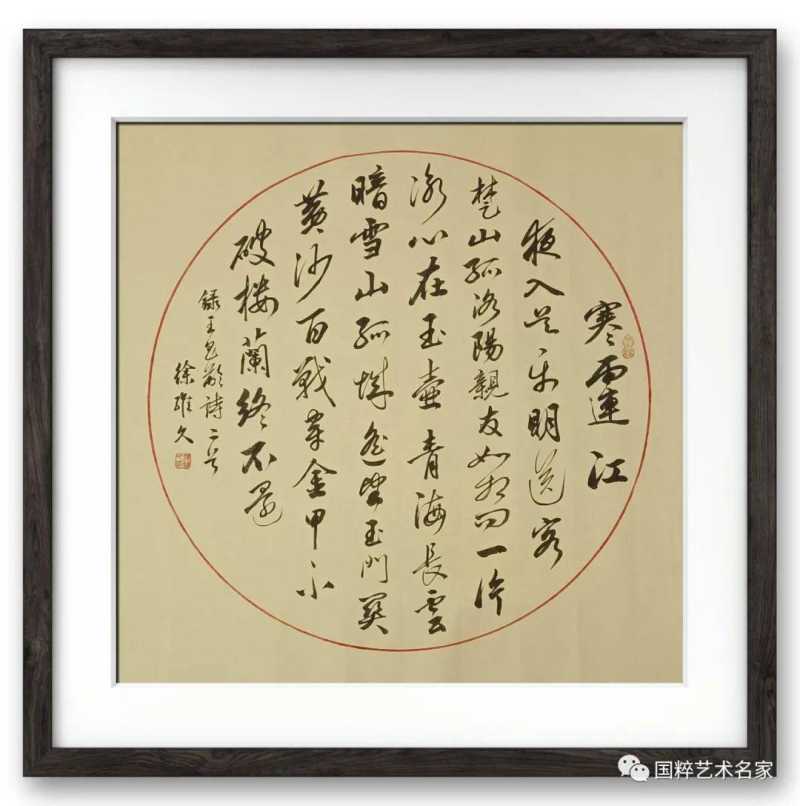 寒雨連江
夜入吴平明送客
楚山孤洛陽親友如相问一片
冰心在玉壺青海長雲
暗雪山孤城遥望玉門関
黄沙百戰穿金甲不
破楼蘭終不還
録王昌齡詩二首
徐久
国粹艺术名家